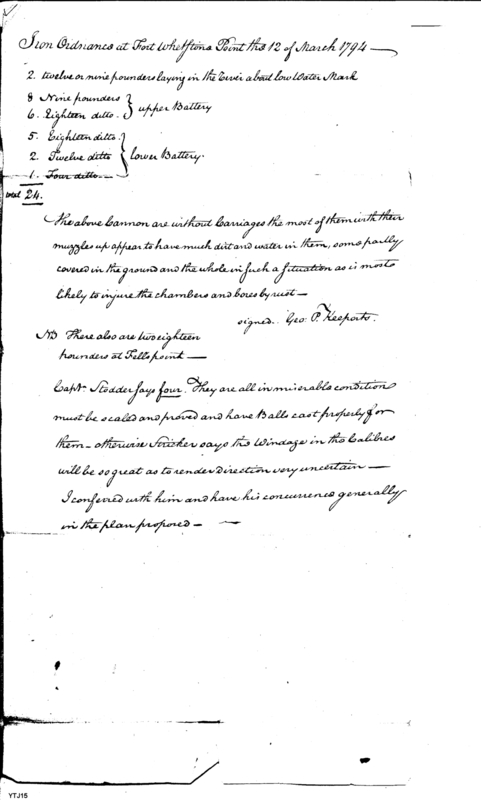 Iron Ordnance at Fort Whetstone Point the 12 of March 1794 —
2. twelve or nine pounders laying in the River about low Water Mark
8 Nine pounders
6. Eighteen ditto. } upper Battery
5. Eighteen ditto.
2. Twelve ditto } lower Battery.
1. Four ditto —
total 24.
The above Cannon are without Carriages the most of them with their
muzzles up appear to have much dirt and water in them, some partly
covered in the ground and the whole in such a situation as is most
likely to injure the chambers and bores by rust —
signed. Geo. P. Keeports.
NB There also are two eighteen
pounders at Fells point —
Capt. Stodder says four. They are all in miserable condition
must be scaled and proved and have Balls cast properly for
them — otherwise Stricker says the Windage in the Calibres
will be so great as to render direction very uncertain —
I conferred with him and have his concurrence generally
in the plan proposed — —
YTJ15